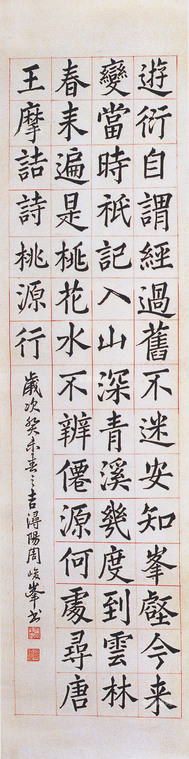 遊衍自謂經過舊不迷安知峯壑今来
變當時祇記入山深青溪幾度到雲林
春来遍是桃花水不辨僊源何處尋唐
王摩詰詩桃源行
歲次癸未春之吉潯陽周峻峯书